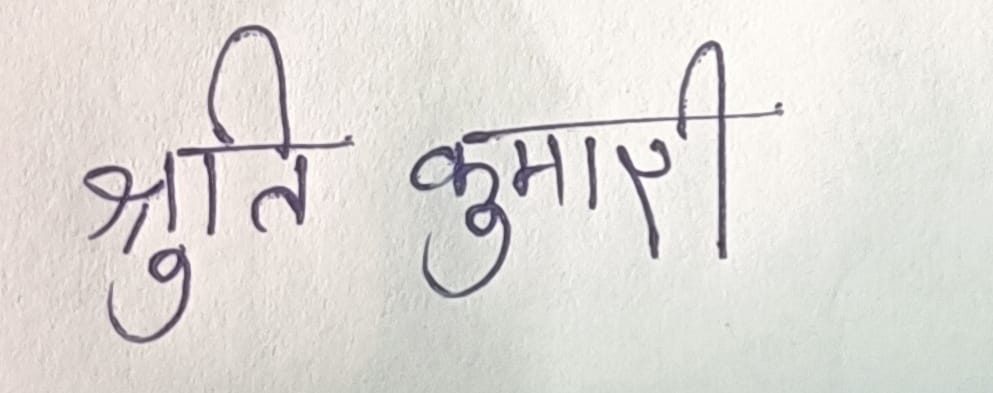 श्रुति कुमारी